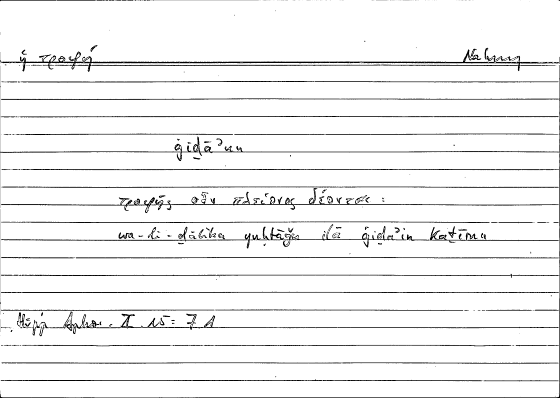 ἡ τροφή Nahrung
ġiḏāʾun
τροφῆς οὖν πλείονος δέονται :
wa-li-ḏālika yuḥtāǧu ilā ġiḏāʾin kaṯīrin
Hipp. Aphor. I. 15 = 7 1